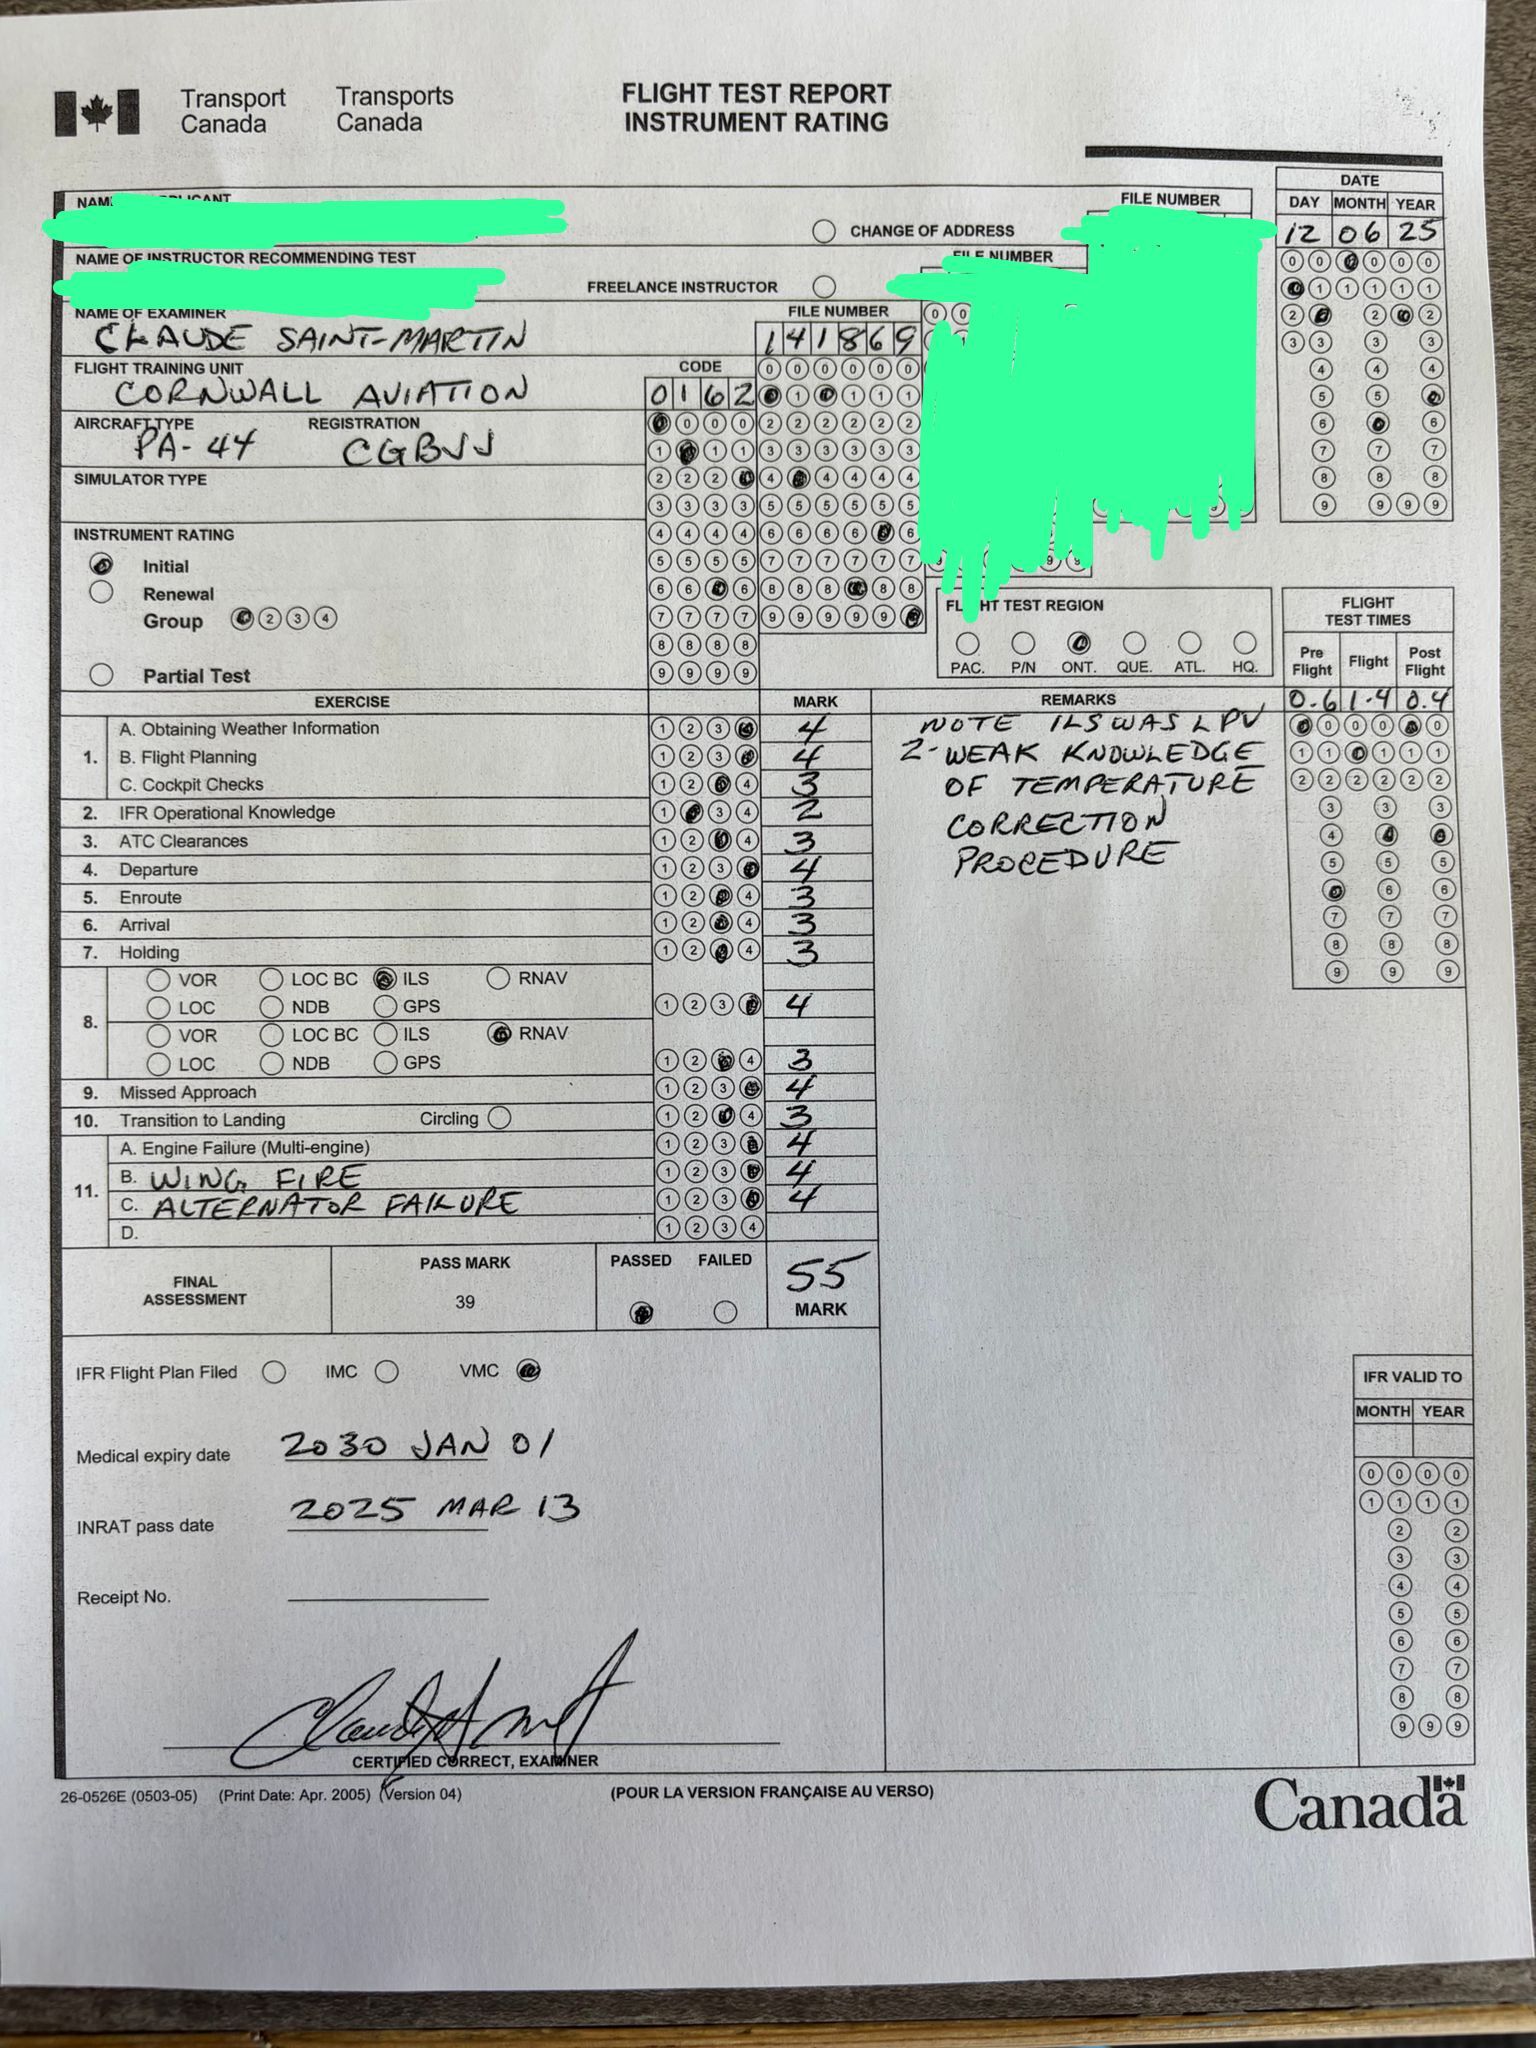 Transport Canada
Transports Canada
FLIGHT TEST REPORT
INSTRUMENT RATING
DATE
DAY MONTH YEAR
12 06 25
FILE NUMBER
CHANGE OF ADDRESS
NAME OF INSTRUCTOR RECOMMENDING TEST
FILE NUMBER
FREELANCE INSTRUCTOR
NAME OF EXAMINER
CLAUDE SAINT-MARTIN
FILE NUMBER
141869
FLIGHT TRAINING UNIT
CORNWALL AVIATION
CODE
0162
AIRCRAFT TYPE
PA-44
REGISTRATION
CGBJJ
SIMULATOR TYPE
INSTRUMENT RATING
Initial
Renewal
Group 2 3 4
Partial Test
FLIGHT TEST REGION
PAC. P/N ONT. QUE. ATL. HQ.
FLIGHT TEST TIMES
Pre Flight Flight Post Flight
0.6 1.4 0.4
EXERCISE MARK REMARKS
1. A. Obtaining Weather Information 1 2 3 4
B. Flight Planning 1 2 3 4
C. Cockpit Checks 1 2 4 3
2. IFR Operational Knowledge 1 3 4 2
3. ATC Clearances 1 2 4 3
4. Departure 1 2 3 4
5. Enroute 1 2 4 3
6. Arrival 1 2 4 3
7. Holding 1 2 4 3
8. VOR LOC BC ILS RNAV
LOC NDB GPS 1 2 3 4
VOR LOC BC ILS RNAV
LOC NDB GPS 1 2 4 3
9. Missed Approach 1 2 3 4
10. Transition to Landing Circling 1 2 4 3
11. A. Engine Failure (Multi-engine) 1 2 3 4
B. WING FIRE 1 2 3 4
C. ALTERNATOR FAILURE 1 2 3 4
D. 1 2 3 4
NOTE ILS WAS LPV
2- WEAK KNOWLEDGE
OF TEMPERATURE
CORRECTION
PROCEDURE
FINAL ASSESSMENT
PASS MARK
39
PASSED FAILED
55
MARK
IFR Flight Plan Filed IMC VMC
Medical expiry date 2030 JAN 01
INRAT pass date 2025 MAR 13
Receipt No.
IFR VALID TO
MONTH YEAR
CERTIFIED CORRECT, EXAMINER
26-0526E (0503-05) (Print Date: Apr. 2005) (Version 04)
(POUR LA VERSION FRANÇAISE AU VERSO)
Canada